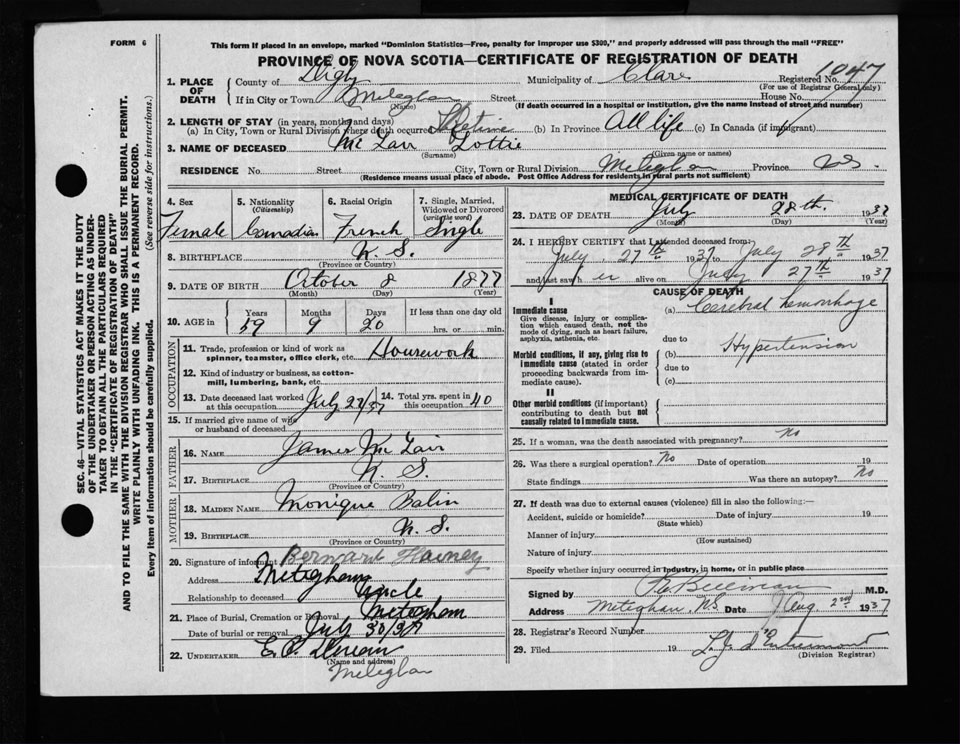 FORM 6
This form if placed in an envelope, marked "Dominion Statistics—Free, penalty for improper use $300," and properly addressed will pass through the mail "FREE"
PROVINCE OF NOVA SCOTIA—CERTIFICATE OF REGISTRATION OF DEATH
1. PLACE OF DEATH County of Digby Municipality of Clare Registered No. 1047
(For use of Registrar General only)
If in City or Town Meteghan Street House No.
(Name) (If death occurred in a hospital or institution, give the name instead of street and number)
2. LENGTH OF STAY (in years, months and days)
(a) In City, Town or Rural Division where death occurred (b) In Province All life (c) In Canada (if immigrant)
3. NAME OF DECEASED Lottie
(Surname) (Given name or names)
RESIDENCE No. Street City, Town or Rural Division Meteghan Province N.S.
(Residence means usual place of abode. Post Office Address for residents in rural parts not sufficient)
4. Sex Female
5. Nationality (Citizenship) Canadian
6. Racial Origin French
7. Single, Married, Widowed or Divorced (write the word) Single
8. BIRTHPLACE N. S.
(Province or Country)
9. DATE OF BIRTH October 8 1877
(Month) (Day) (Year)
10. AGE in Years 59 Months 9 Days 20 If less than one day old hrs. or min.
OCCUPATION
11. Trade, profession or kind of work as spinner, teamster, office clerk, etc. Housework
12. Kind of industry or business, as cotton-mill, lumbering, bank, etc.
13. Date deceased last worked at this occupation July 27/37
14. Total yrs. spent in this occupation 40
15. If married give name of wife or husband of deceased
FATHER
16. NAME James
17. BIRTHPLACE N. S.
(Province or Country)
MOTHER
18. MAIDEN NAME Monique
19. BIRTHPLACE N. S.
(Province or Country)
20. Signature of informant Bernard
Address Meteghan
Relationship to deceased Uncle
21. Place of Burial, Cremation or Removal Meteghan
Date of burial or removal July 30/37
22. UNDERTAKER
(Name and address)
Meteghan
MEDICAL CERTIFICATE OF DEATH
23. DATE OF DEATH July 28th. 1937
(Month) (Day) (Year)
24. I HEREBY CERTIFY that I attended deceased from:
July 27th 1937 to July 28th 1937
and last saw her alive on July 27th 1937
CAUSE OF DEATH
I
Immediate cause
Give disease, injury or complication which caused death, not the mode of dying, such as heart failure, asphyxia, asthenia, etc.
(a) Cerebral hemorrhage
due to
Morbid conditions, if any, giving rise to immediate cause (stated in order proceeding backwards from immediate cause).
(b) Hypertension
due to
(c)
II
Other morbid conditions (if important) contributing to death but not causally related to immediate cause.
25. If a woman, was the death associated with pregnancy? no
26. Was there a surgical operation? no Date of operation 19
State findings Was there an autopsy? no
27. If death was due to external causes (violence) fill in also the following:—
Accident, suicide or homicide? Date of injury 19
(State which)
Manner of injury
(How sustained)
Nature of injury
Specify whether injury occurred in industry, in home, or in public place
Signed by M.D.
Address Meteghan, N.S. Date Aug 2nd 1937
28. Registrar's Record Number
29. Filed 19
(Division Registrar)
SEC. 46—VITAL STATISTICS ACT MAKES IT THE DUTY
OF THE UNDERTAKER OR PERSON ACTING AS UNDER-
TAKER TO OBTAIN ALL THE PARTICULARS REQUIRED
IN THE "CERTIFICATE OF REGISTRATION OF DEATH"
AND TO FILE THE SAME WITH THE DIVISION REGISTRAR WHO SHALL ISSUE THE BURIAL PERMIT.
WRITE PLAINLY WITH UNFADING INK. THIS IS A PERMANENT RECORD.
Every item of information should be carefully supplied. (See reverse side for instructions.)